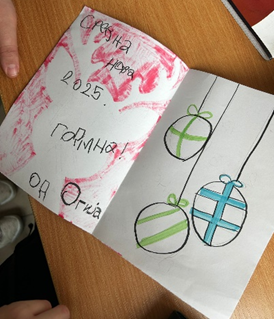 Среќна
нова
2025.
година!
од Огнја